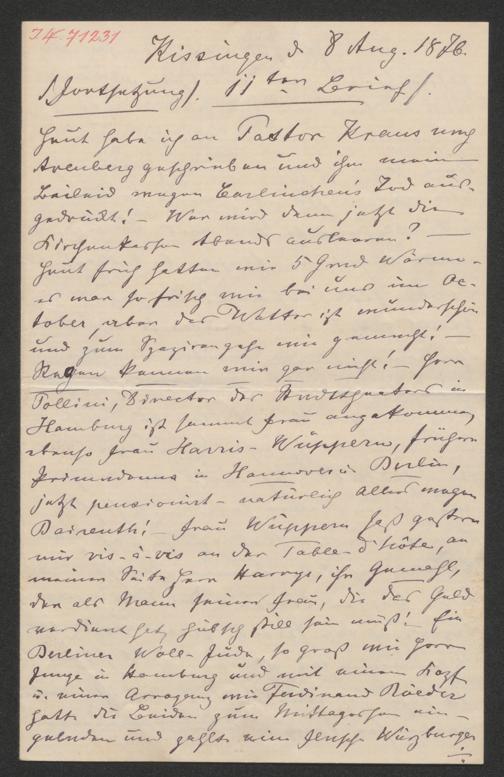 I.N. 71231
Kissingen d 8 Aug. 1876.
(Fortsetzung). 11ten Brief).
Heut habe ich an Pastor Kraus nach
Arenberg geschrieben und ihm mein
Beileid wegen Carlinchen's Tod aus-
gedrückt! – Wer wird denn jetzt die
Kirchenkassen Abends ausleeren? –
Heut früh hatten wir 5 Grad Wärme –
es war so frisch wie bei uns im Oc-
tober, aber das Wetter ist wunderschön
und zum Spazirengehn wie gemacht! –
Regen kennen wir gar nicht! – Herr
Pollini, Director des Stadttheaters in
Hamburg ist sammt Frau angekommen,
ebenso Frau Harris-Wippern, frühere
Primadonna in Hannover u Berlin,
jetzt pensionirt – natürlich Alles wegen
Baireuth! – Frau Wippern saß gestern
mir vis-à-vis an der Table-d'hôte, an
meiner Seite Herr Harrys, ihr Gemahl,
der als Mann seiner Frau, die das Geld
verdient hat, hübsch still sein muß! – Ein
Berliner Woll-Jude, so groß wie Herr
Junge in Hamburg und mit einem Kopf
u. einer Arroganz wie Ferdinand Roeder
hatte die Beiden zum Mittagessen ein-
geladen und zahlte eine Flasche Würzburger